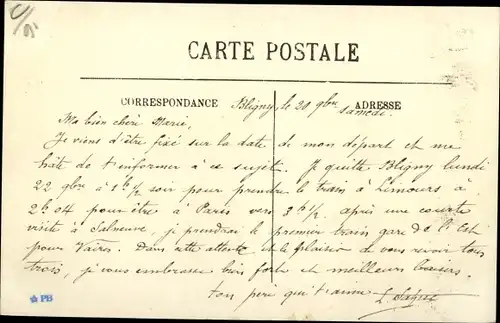 CARTE POSTALE
CORRESPONDANCE
ADRESSE
Bligny, le 20 9bre
samedi.
Ma bien chère Marie,
Je viens d'être fixé sur la date de mon départ et me
hâte de t'informer à ce sujet. Je quitte Bligny lundi
22 9bre à 1h ½ soir pour prendre le train à Limours à
2h 04 pour être à Paris vers 3h ½. après une courte
visite à je prendrai le premier train gare de l'Est
pour Vaires. Dans cette attente et le plaisir de vous revoir tous
trois, je vous embrasse bien fort et meilleurs baisers.
ton père qui t'aime
PB